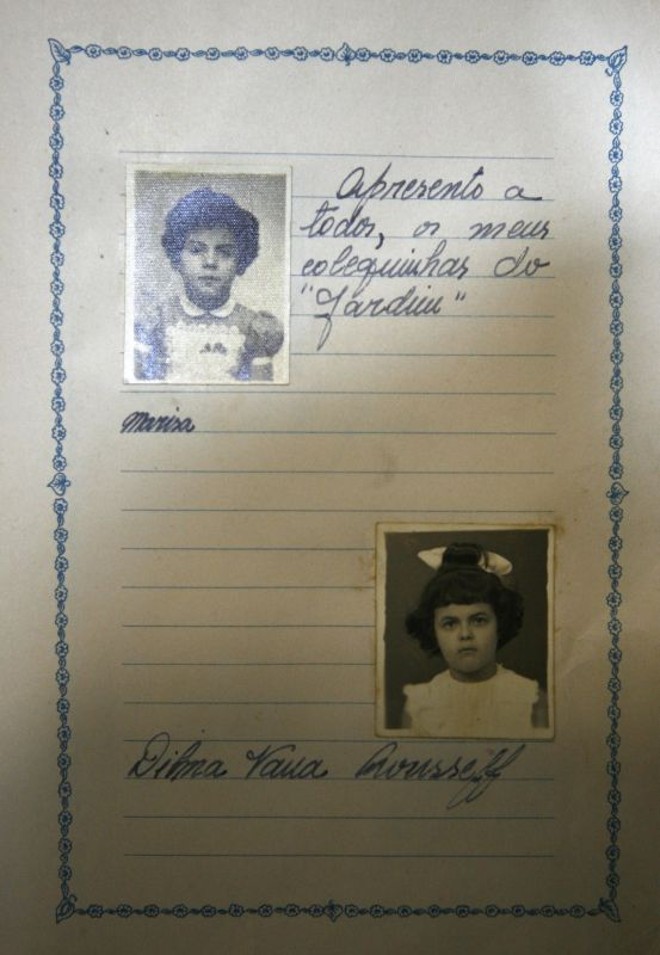 Apresento a
todos, os meus
coleguinhas do
"Jardim"
Marisa
Dilma Vana Rousseff